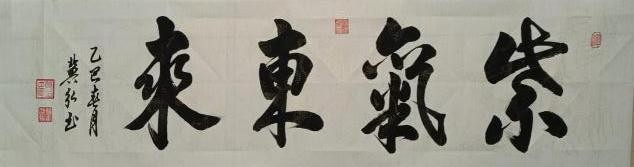 紫氣東來
乙巳春月
冀弘書